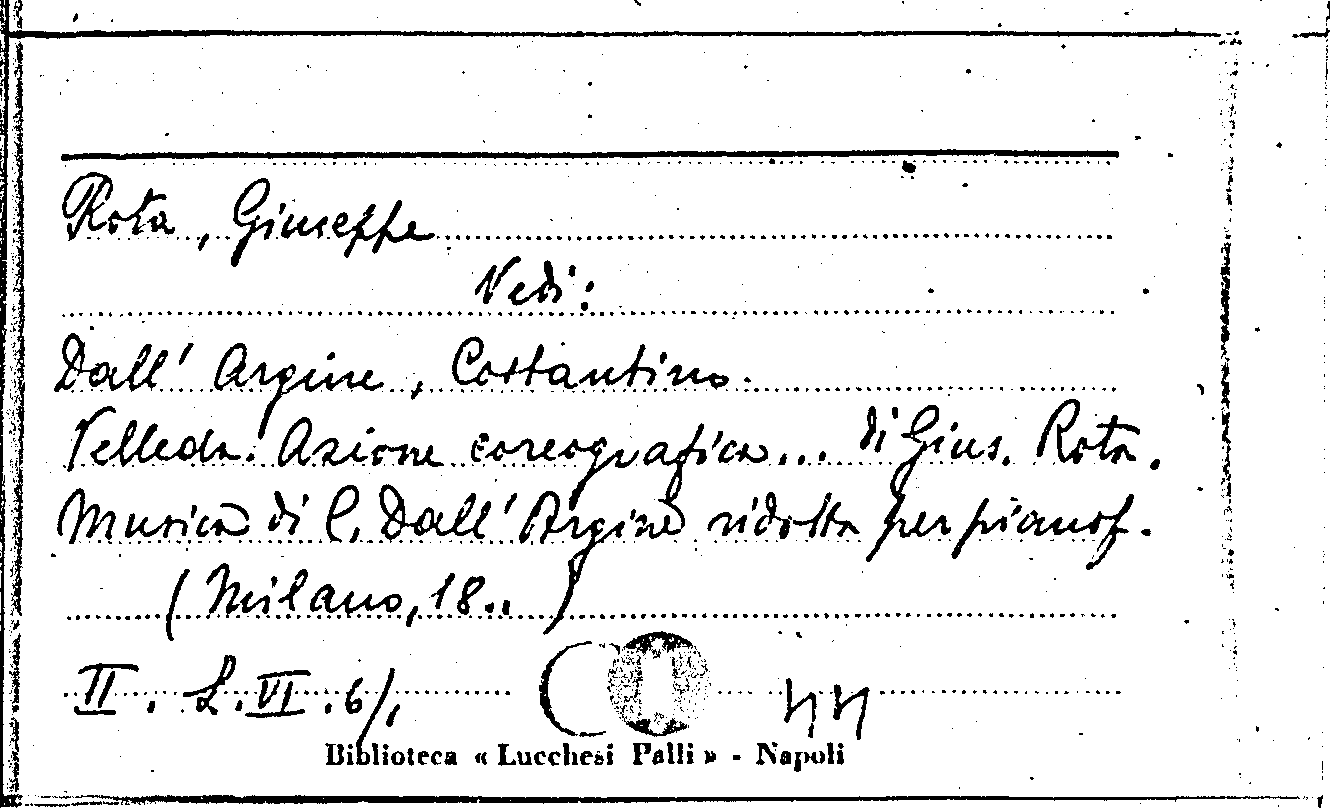 Rota, Giuseppe
Vedi:
Dall' Argine, Costantino.
Velleda. Azione coreografica... di Gius. Rota.
Musica di C. Dall' Argine ridotta per pianof.
(Milano, 18..)
II. L. VI. 6/1
Biblioteca « Lucchesi Palli » - Napoli